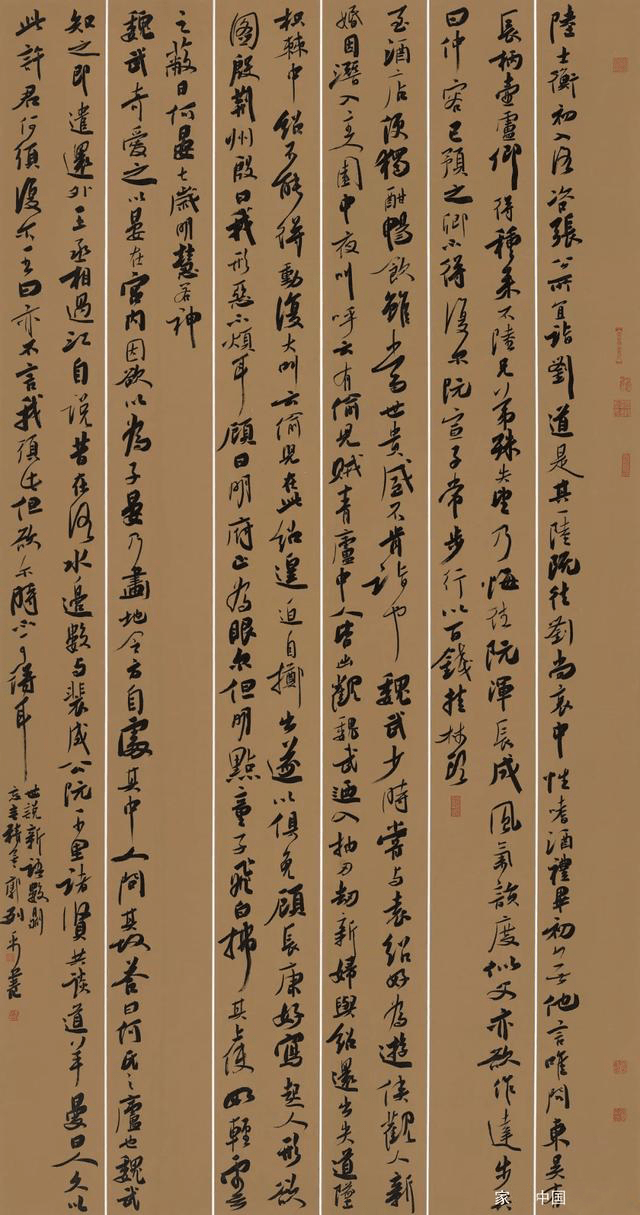 陸士衡初入洛咨張公所宜詣劉道是其一陸既往劉尚哀中性嗜酒禮畢初無他言唯問東吳有
長柄壺盧卿得種來不陸兄弟殊失望乃悔往阮渾長成風氣韻度似父亦欲作達步兵
曰仲容已預之卿不得復尔阮宣子常步行以百錢挂杖頭
至酒店便獨酣暢飲雖當世貴盛不肯詣也魏武少時嘗與袁紹好為遊俠觀人新
婚因潛入主園中夜叫呼云有偷兒賊青廬中人皆出觀魏武迺入抽刃劫新婦與紹還出失道墜
枳棘中紹不能得動復大叫云偷兒在此紹遑迫自擲出遂以俱免顧長康好寫起人形欲
圖殷荊州殷曰我形惡不煩耳顧曰明府正為眼尔但明點童子飛白拂其上使如輕雲
之蔽日何晏七歲明慧若神
魏武奇愛之以晏在宮内因欲以為子晏乃畫地令方自處其中人問其故荅曰何氏之廬也魏武
知之即遣還外王丞相過江自說昔在洛水邊數與裴成公阮千里諸賢共談道羊曼曰人久以
此許卿何須復尔王曰亦不言我須此但欲尔時不可得耳
世說新語數則
郭列平
家 中国